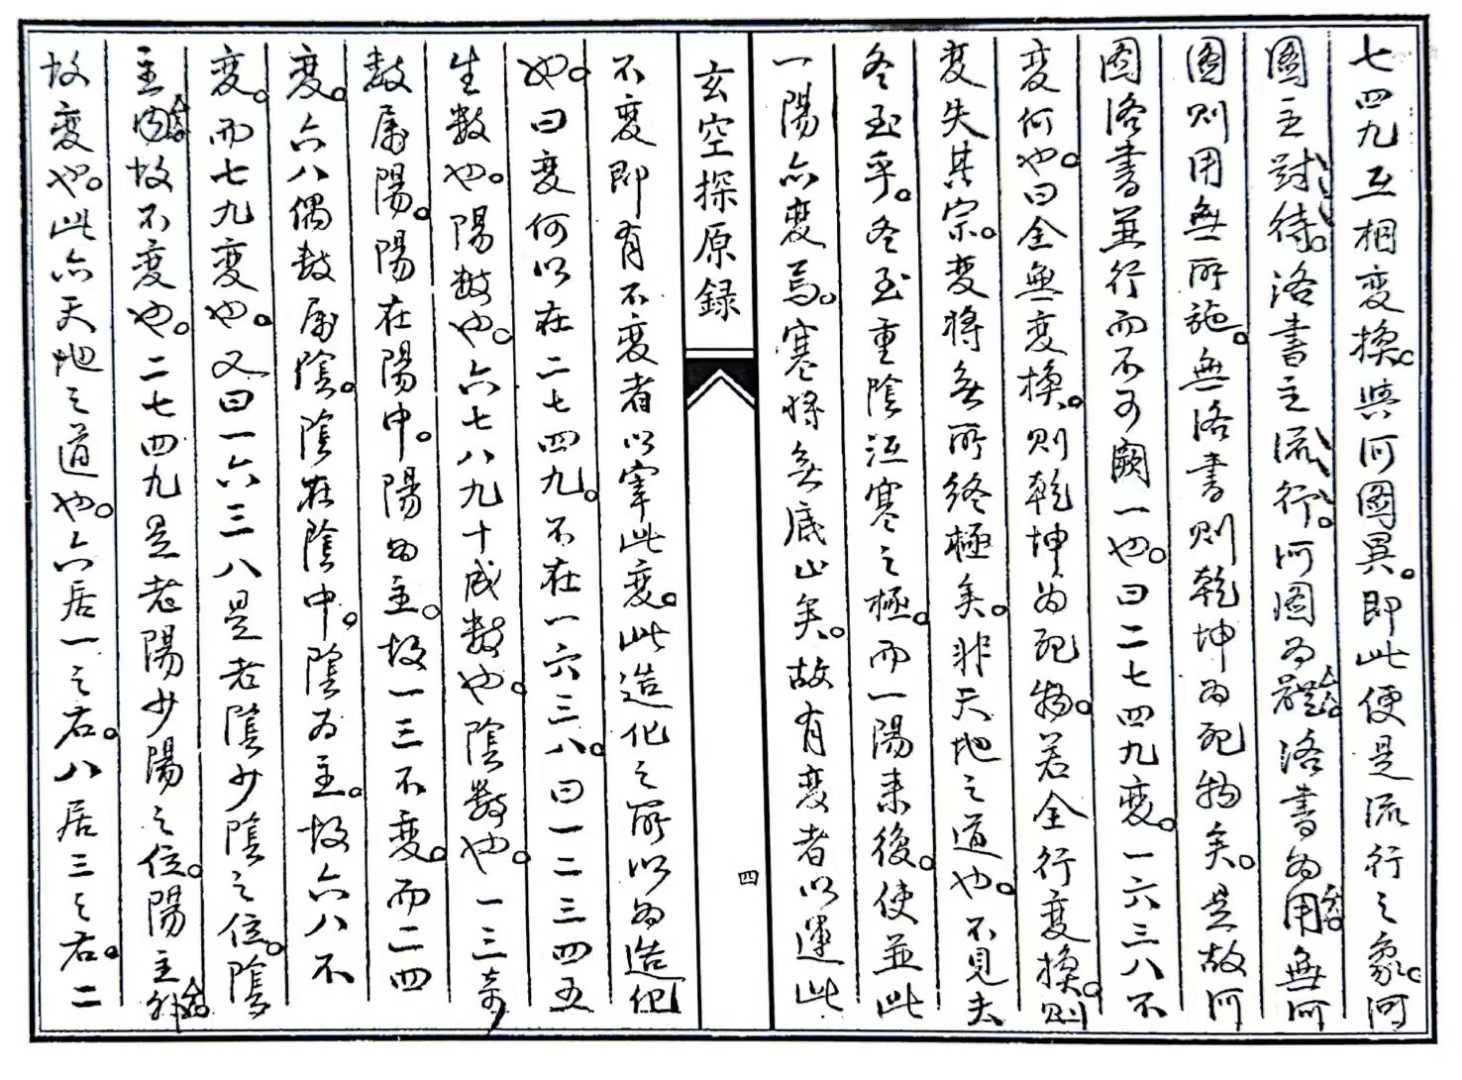 七四九互相变換。與河圖異。即此便是流行之象。河
圖主對待。洛書主流行。河图为體。洛書为用。無河
圖則用無所施。無洛書則乾坤为死物矣。是故河
图洛書並行而不可闕一也。曰二七四九变。一六三八不
变何也。曰全無变換。則乾坤为死物。若全行变換。則
变失其宗。变將無所終極矣。非天地之道也。不見夫
冬至乎。冬至重陰沍寒之極。而一陽来復。使並此
一陽亦变焉。寒將無底止矣。故有变者以運此
玄空探原録
四
不变即有不变者以宰此变。此造化之所以为造化
也。曰变何以在二七四九。不在一六三八。曰一二三四五
生数也。陽数也。六七八九十成数也。陰数也。一三奇
数属陽。陽在陽中。陽为主。故一三不变。而二四
变。六八偶数属陰。陰在陰中。陰为主。故六八不
变。而七九变也。又曰一六三八是老陰少陰之位。陰
主内。故不变也。二七四九是老陽少陽之位。陽主外。
故变也。此亦天地之道也。六居一之右。八居三之右。二